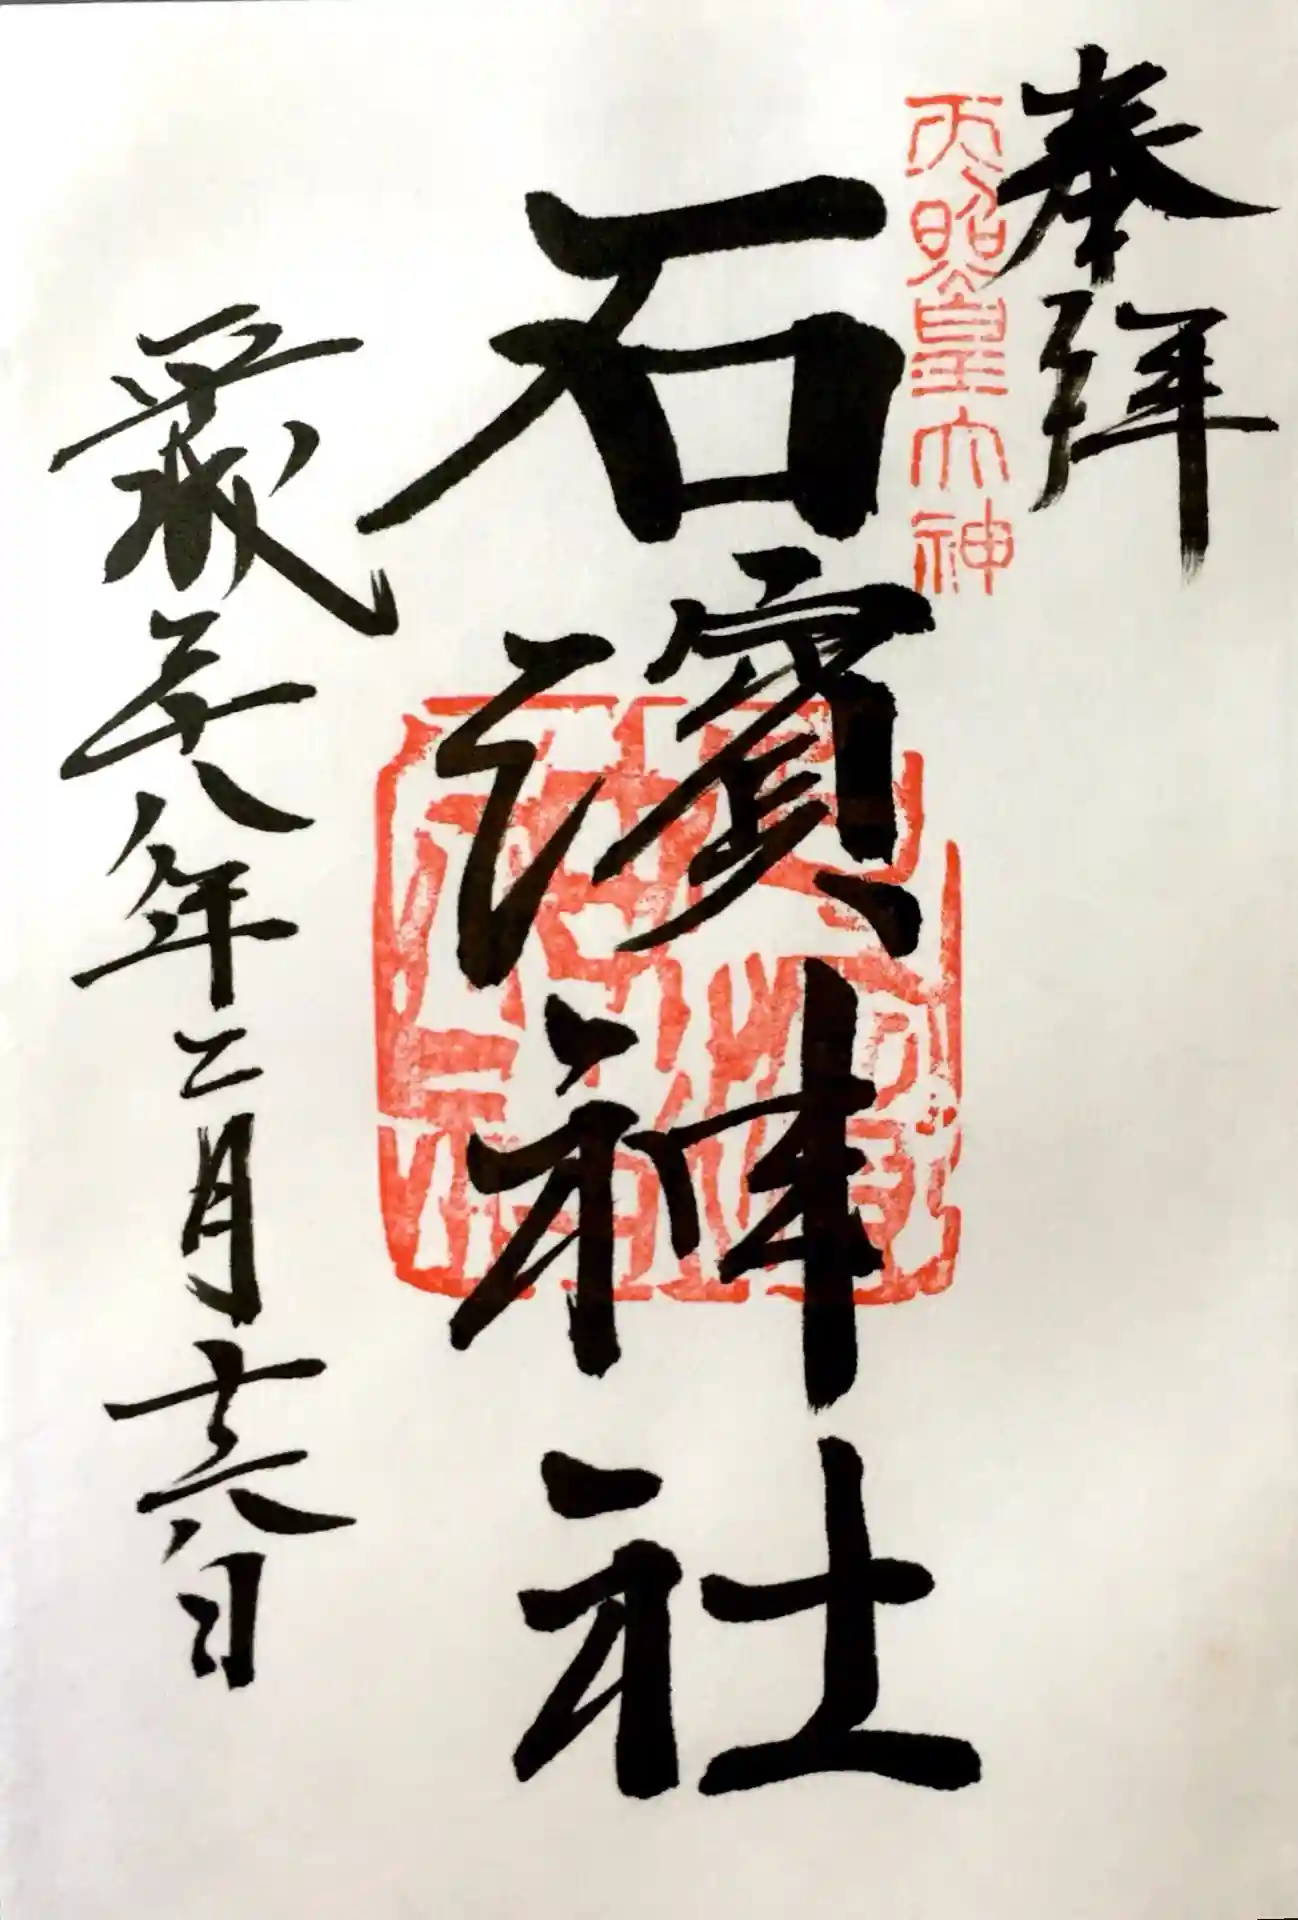 奉拝
天照皇大神
石濱神社
平成二十八年二月十六日